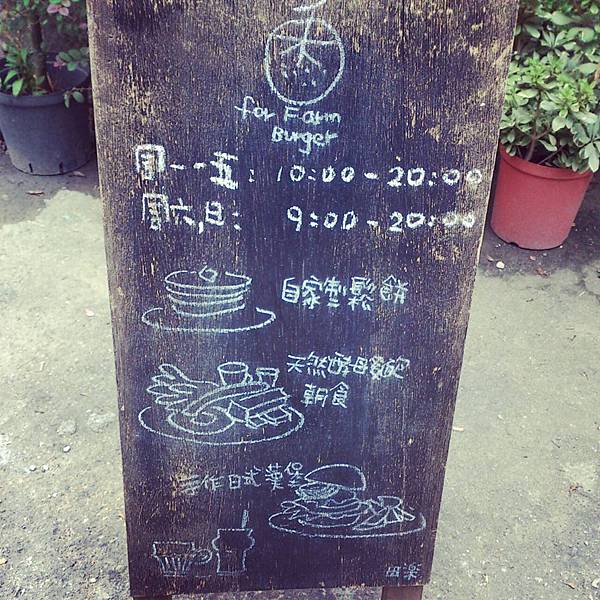 for Farm
Burger
周一~五: 10:00-20:00
周六,日: 9:00-20:00
自家製鬆餅
天然酵母麵包
朝食
手作日式漢堡
田楽